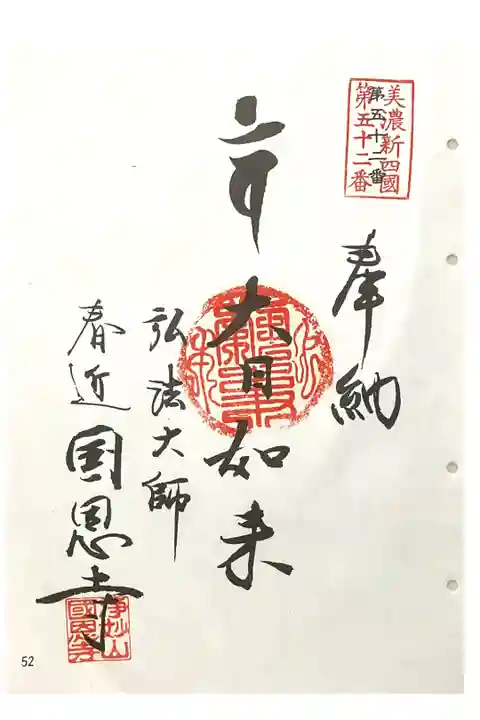 美濃新四國
第五十二番
第五十二番
奉納
大日如来
弘法大師
春近 国恩寺
浄妙山
國恩寺
52